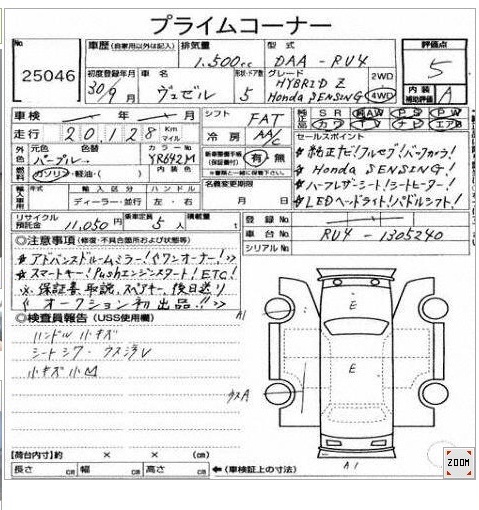 プライムコーナー
No 25046
車歴 (自家用以外は記入) 排気量 1.500cc 型式 DAA-RU4 評価点 5
初度登録年月 30年9月 車名 ヴェゼル 形状・ドア数 5 グレード HYBRID Z Honda SENSING 2WD 4WD 内装補助評価 A
車検 年 月 シフト FAT
走行 20,128 Km マイル 冷房 AA/C
SR AW PS PW カワ TV ナビ エアB
外色 元色 色替 パープル カラーNo YR642M 内装色
燃料 ガソリン・軽油・( )
新車整備手帳(保証書付) 有 無
名義変更期限 月 日
セールスポイント
☆純正ナビ!フルセグ!バックカメラ!
☆Honda SENSING!
☆ハーフレザーシート!シートヒーター!
☆LEDヘッドライト!パドルシフト!
輸入車用 年式 輸入区分 ディーラー・並行 ハンドル 左・右
リサイクル預託金 11,050円 乗車定員 5人 積載量 t
登録No
車台No RU4-1305240
シリアルNo
◎注意事項 (修復・不具合箇所および状態等)
☆アドバンスドルームミラー!《ワンオーナー!》
☆スマートキー!Pushエンジンスタート!ETC!
※保証書、取説、スペアキー、後日送り
《オークション初出品!!》
◎検査員報告 (USS使用欄)
ハンドル小キズ
シートシワ・ウスヨゴレ
小キズ小凹
A1
E
E
ウスA
A1
【荷台内寸】約 × × (cm)
長さ cm 幅 cm 高さ cm ←(車検証上の寸法)
ZOOM